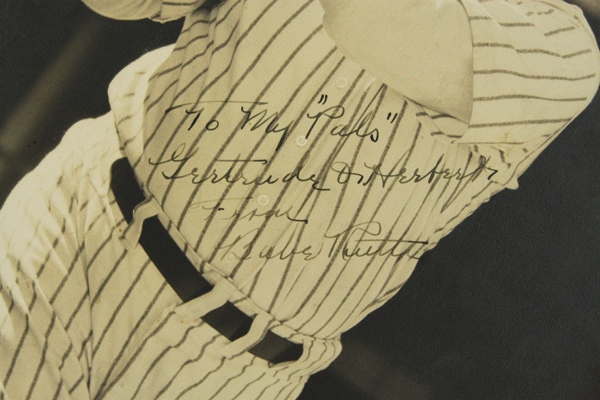 To My "Pals"
Gertrude & Herbert
From
Babe Ruth